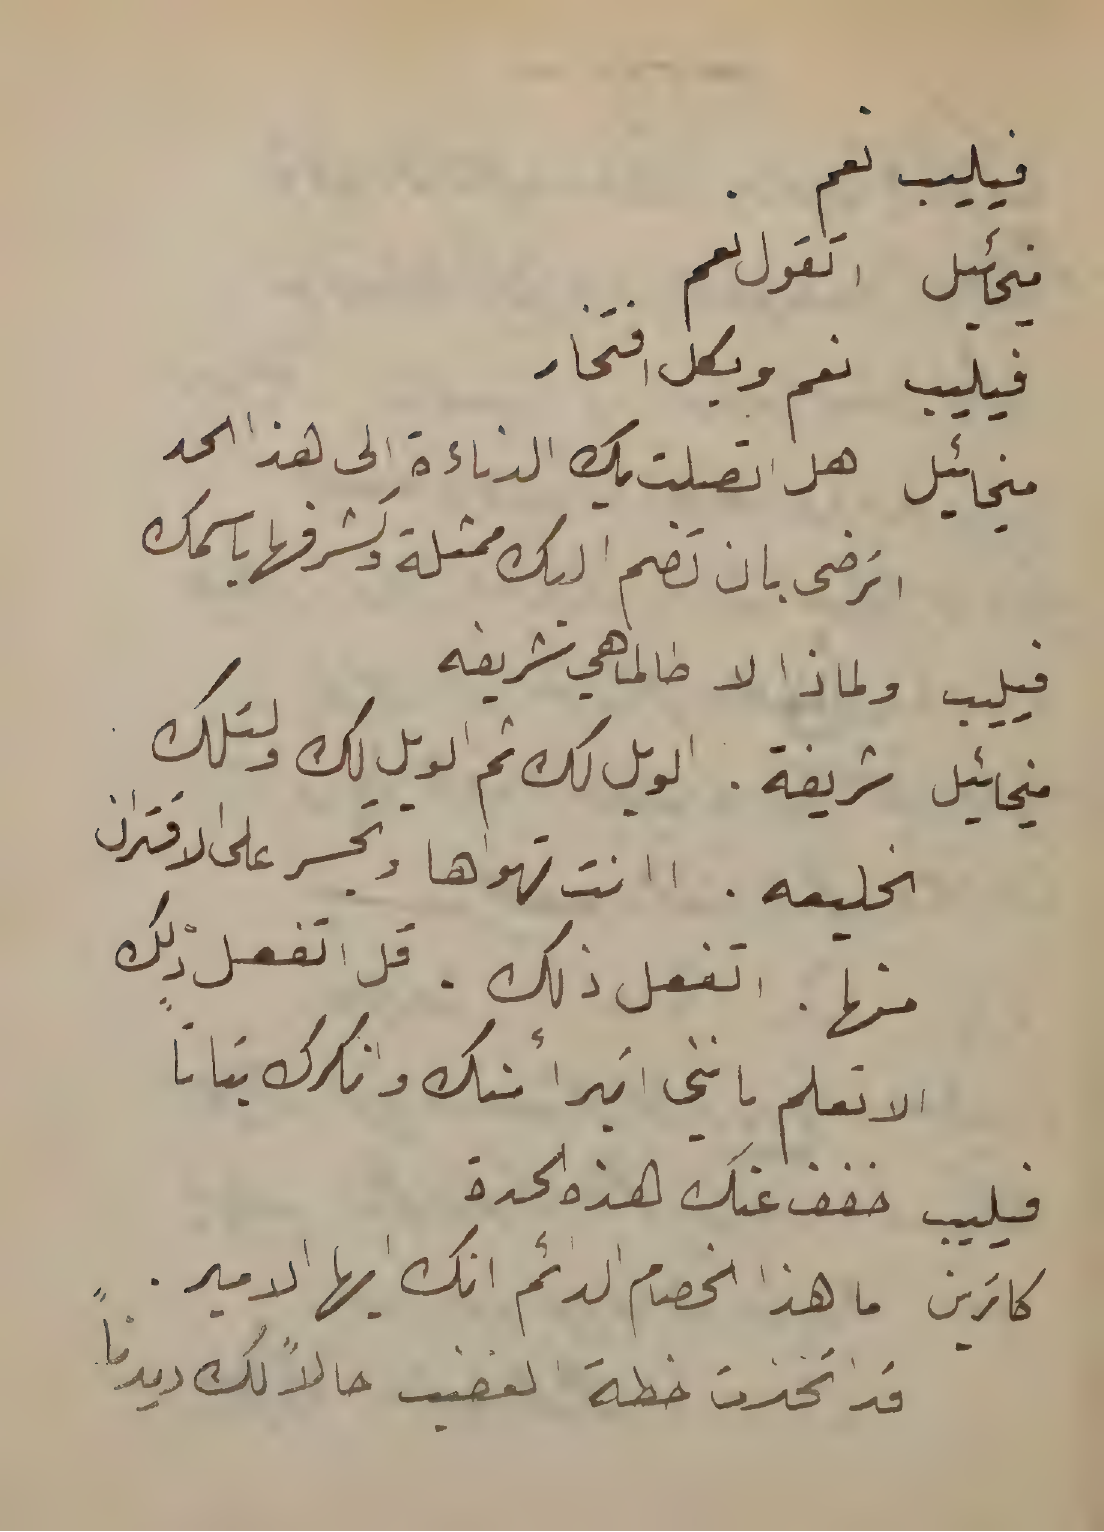 فيليب نعم .
ميخائيل اتقول نعم
فيليب نعم وبكل افتخار
ميخائيل هل اتصلت بك الدناءة الى هذا الحد
اترضى بان تضم اليك ممثلة وتشرفها باسمك
فيليب ولماذا لا طالما هي شريفه
ميخائيل شريفة . الويل لك ثم الويل لك ولتلك
الخليعه . اانت تهواها وتجسر على الاقتران
منها . اتفعل ذلك . قل اتفعل ذلك
الا تعلم بانني اتبرأ منك وانكرك بتاتاً
فيليب خفف عنك هذه الحدة
كاترين ما هذا الخصام الدائم انك ايها الامير .
قد اتخذت خطة الغضب حالاً لك ديدناً